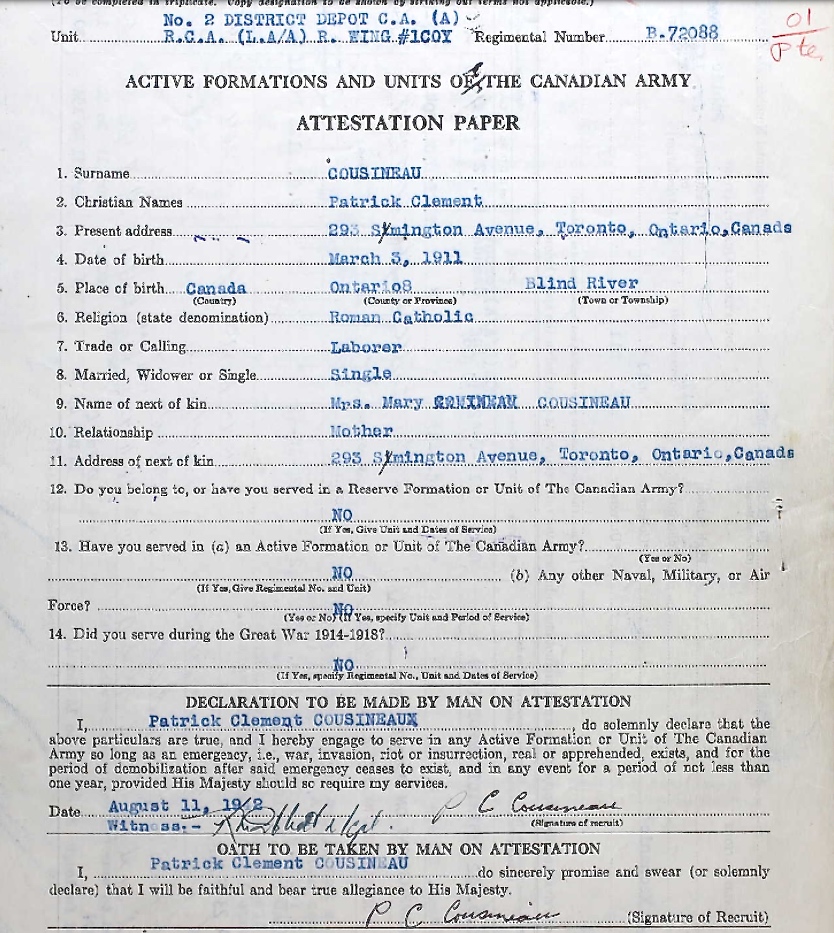 (To be completed in triplicate. Copy designation to be shown by striking out terms not applicable.)
No. 2 DISTRICT DEPOT C.A. (A)
Unit R.C.A. (L.A/A) R. WING #1COY Regimental Number B.72088
01
Pte.
ACTIVE FORMATIONS AND UNITS OF THE CANADIAN ARMY
ATTESTATION PAPER
1. Surname COUSINEAU
2. Christian Names Patrick Clement
3. Present address 293 Symington Avenue, Toronto, Ontario, Canada
4. Date of birth March 3, 1911
5. Place of birth Canada Ontario8 Blind River
(Country) (County or Province) (Town or Township)
6. Religion (state denomination) Roman Catholic
7. Trade or Calling Laborer
8. Married, Widower or Single Single
9. Name of next of kin Mrs. Mary COUSINEAU
10. Relationship Mother
11. Address of next of kin 293 Symington Avenue, Toronto, Ontario, Canada
12. Do you belong to, or have you served in a Reserve Formation or Unit of The Canadian Army?
NO
(If Yes, Give Unit and Dates of Service)
13. Have you served in (a) an Active Formation or Unit of The Canadian Army?
(Yes or No)
NO (b) Any other Naval, Military, or Air
(If Yes, Give Regimental No. and Unit)
Force? NO
(Yes or No) (If Yes, specify Unit and Period of Service)
14. Did you serve during the Great War 1914-1918?
NO
(If Yes, specify Regimental No., Unit and Dates of Service)
DECLARATION TO BE MADE BY MAN ON ATTESTATION
I, Patrick Clement COUSINEAUX, do solemnly declare that the
above particulars are true, and I hereby engage to serve in any Active Formation or Unit of The Canadian
Army so long as an emergency, i.e., war, invasion, riot or insurrection, real or apprehended, exists, and for the
period of demobilization after said emergency ceases to exist, and in any event for a period of not less than
one year, provided His Majesty should so require my services.
Date August 11, 1942 P C Cousineau
Witness:- (Signature of recruit)
OATH TO BE TAKEN BY MAN ON ATTESTATION
Patrick Clement COUSINEAU
I, do sincerely promise and swear (or solemnly
declare) that I will be faithful and bear true allegiance to His Majesty.
P C Cousineau (Signature of Recruit)